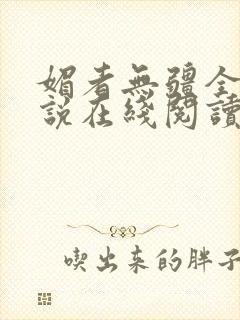 媚者無疆全
說在綫閱讀
喫出来的胖子